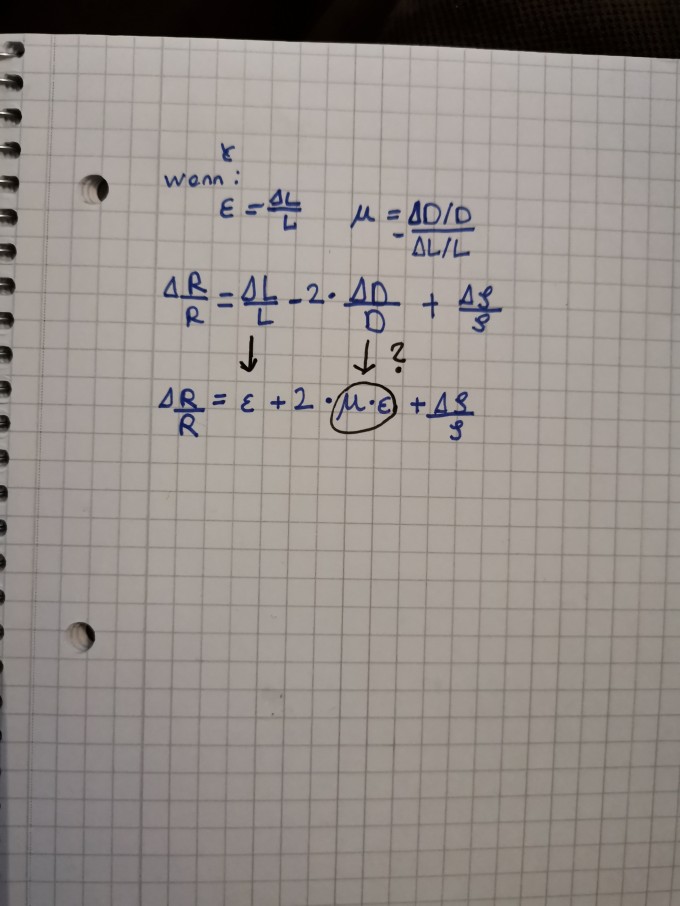 wenn:
ε = ΔL/L μ = - ΔD/D / ΔL/L
ΔR/R = ΔL/L - 2 · ΔD/D + Δϱ/ϱ
↓ ↓ ?
ΔR/R = ε + 2 · μ·ε + Δϱ/ϱ